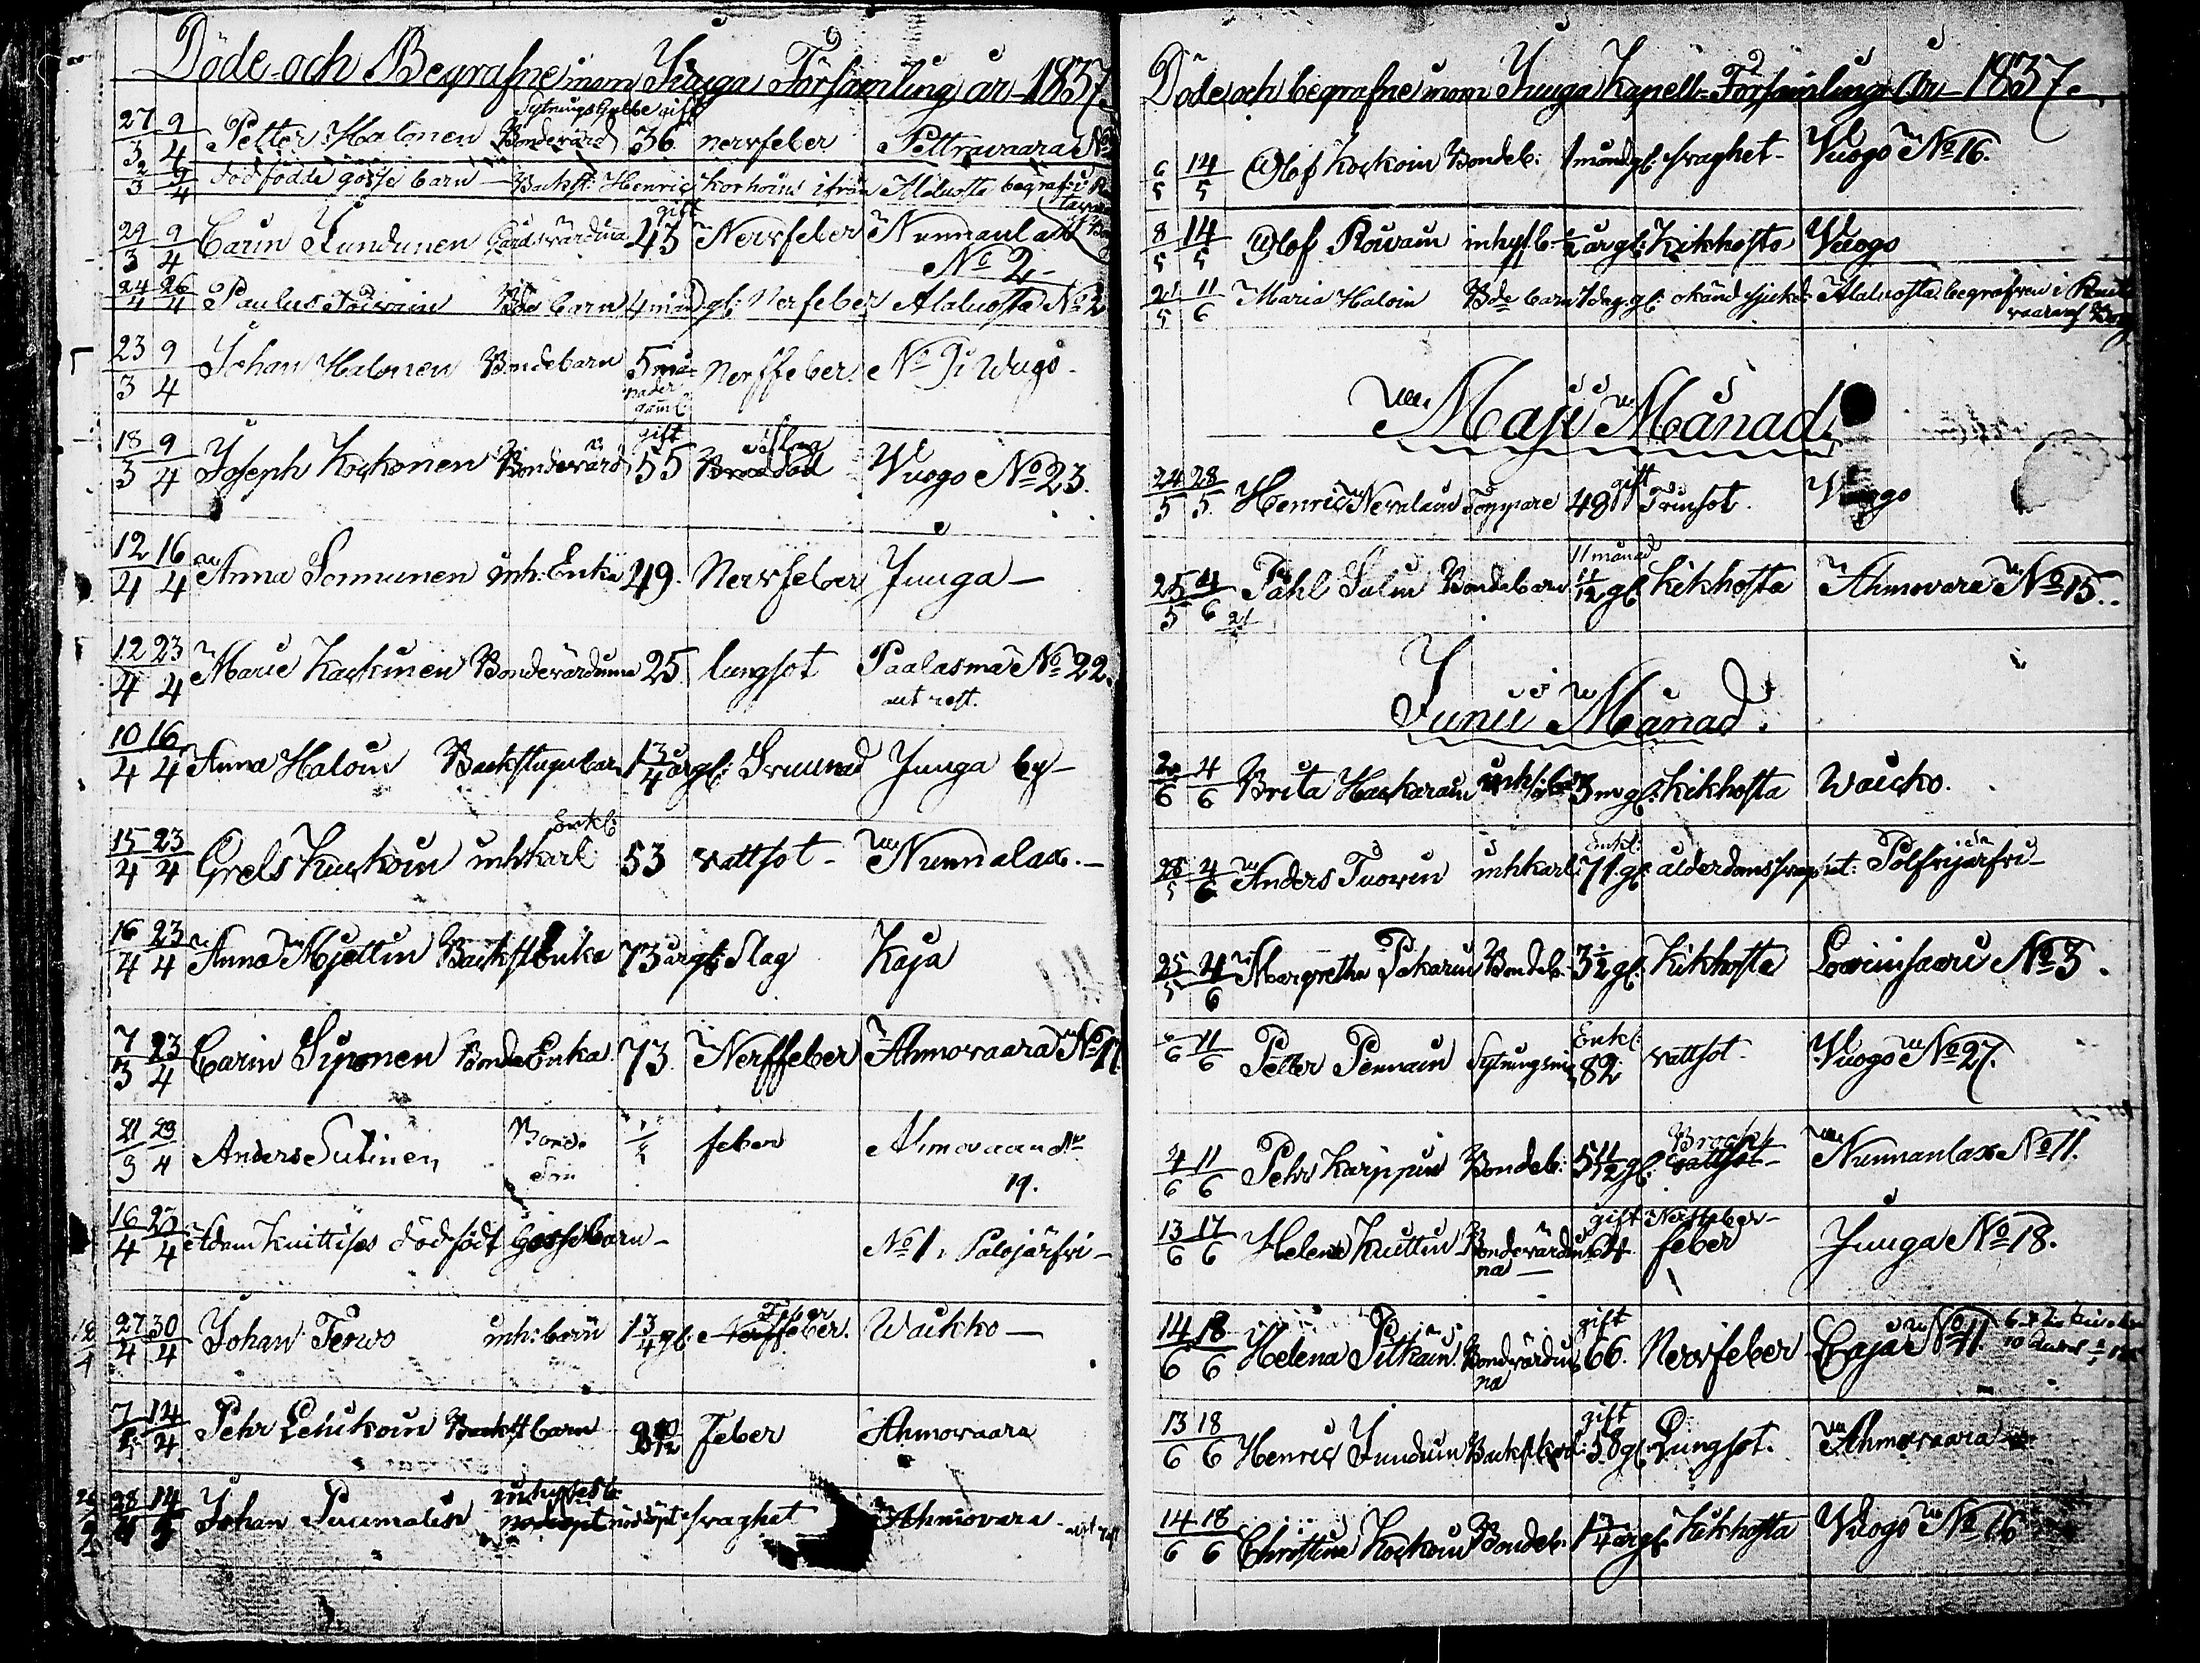 Döde och Begrafne inom Juuga Församling år 1837.
27/3 9/4 Petter Halonen Sytnings Gubbe gift Bondevärd 36. nervfeber Pettravaara No
2/3 9/4 dödfödde gosse barn — Backst: Henric Korhoins ifrån Alaluosta begraf: i
29/3 9/4 Carin Tundunen Gårdsvärdina gift 43 Nervfeber Nunnanlax No 2 —
24/4 26/4 Paulus Toivain Bde barn 4 månd gl: Nerfeber Alaluosta No 2
23/3 9/4 Johan Halonen Bondebarn 5 månader gaml: Nerffeber. No 9 i Wuogo —
18/3 9/4 Joseph Kockonen Bondevärd gift 55 Slag Vuogo No 23.
12/4 16/4 Anna Sormunen inh: Enka 49. Nervfeber Juuga —
12/4 23/4 Marie Kackinen Bondevärdinna 25 lungsot Paalasma No 22.
ut rest.
10/4 16/4 Anna Haloin Backstugubarn 1 3/4 årgl: Juuga by —
15/4 23/4 Grels Kuckoin inhkarl Enkl: 53 vattsot — Nunnalax. —
16/4 23/4 Anna Mjettin Backst Enka 73 årgl: Slag Kaja
7/3 23/4 Carin Siponen Bonde Enka 73. Nerffeber Ahmovaara No 11
21/3 23/4 Anders Sutinen Bonde Son feber Ahmovaara No
19.
16/4 23/4 Adam Knittises dödfödt Gossebarn — No 1. Polojärfvi —
27/4 30/4 Johan Terwo inh: barn 1 3/4 gl: Feber Waikko —
7/5 14/4 Pehr Lehikoin Backst barn Feber Ahmovaara
28/4 14/5 Johan Puumalin inhyses b: nödöpt svaghet Ahmovara

Döde och begrafne inom Juuga Kapell-Församling år 1837.
6/5 14/5 Olof Kockoin Bondeb: 1 måndgl: svaghet — Vuogo No 16.
8/5 14/5 Olof Rouvain inhys b: 1/2 årgl: Kikhosta Vuogo
21/5 11/6 Maria Haloin Bde barn 7 dag: gl: okänd sjukd: Alaluosta. begrafven i
Maji Månad.
24/5 28/5 Henric Nevalain Torppare gift 49 Tvinsot. Vuogo
25/5 4/6 Påhl Salin Bondebarn 11 månad 11/12 gl: Kikhosta Ahmovara No 15.
Junii Månad.
2/6 4/6 Brita Hackarain 3 m gl: kikhosta Waicko.
28/5 4/6 Anders Tuovin inhkarl Enkl: 71. gl: ålderdomssvaghet: Polfvijärfvi —
25/5 4/6 Margretha Pakarin Bondeb: 3 1/2 gl: Kikhosta Lovinsaari No 3.
6 11/6 Petter Pennain Sytnings Enkl: 82 vattsot — Vuogo No 27.
4/6 11/6 Pehr Karppin Bondeb: 5 1/2 gl: Brock Nunnanlax No 11.
13/6 17/6 Helena Kuittin Bondevärdinna — gift 64 feber Juuga No 18.
14/6 18/6 Helena Pitkäin Bondevärdinna gift 66. Nervfeber Cajai No 11.
13/6 18/6 Henric Tundun Backstkarl gift 58 gl: Lungsot. Ahmovaara
14/6 18/6 Christina Kockoin Bondeb: 1 1/4 årgl: Kikhosta Vuogo No 16